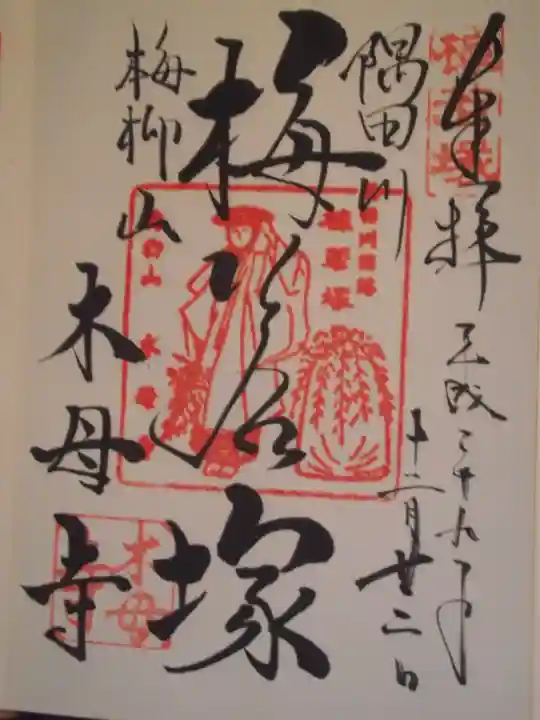 奉拝
平成二十九年
十二月廿二日
梅若塚
隅田川
梅若塚
梅柳山
木母寺
梅若塚
梅柳山
木母寺